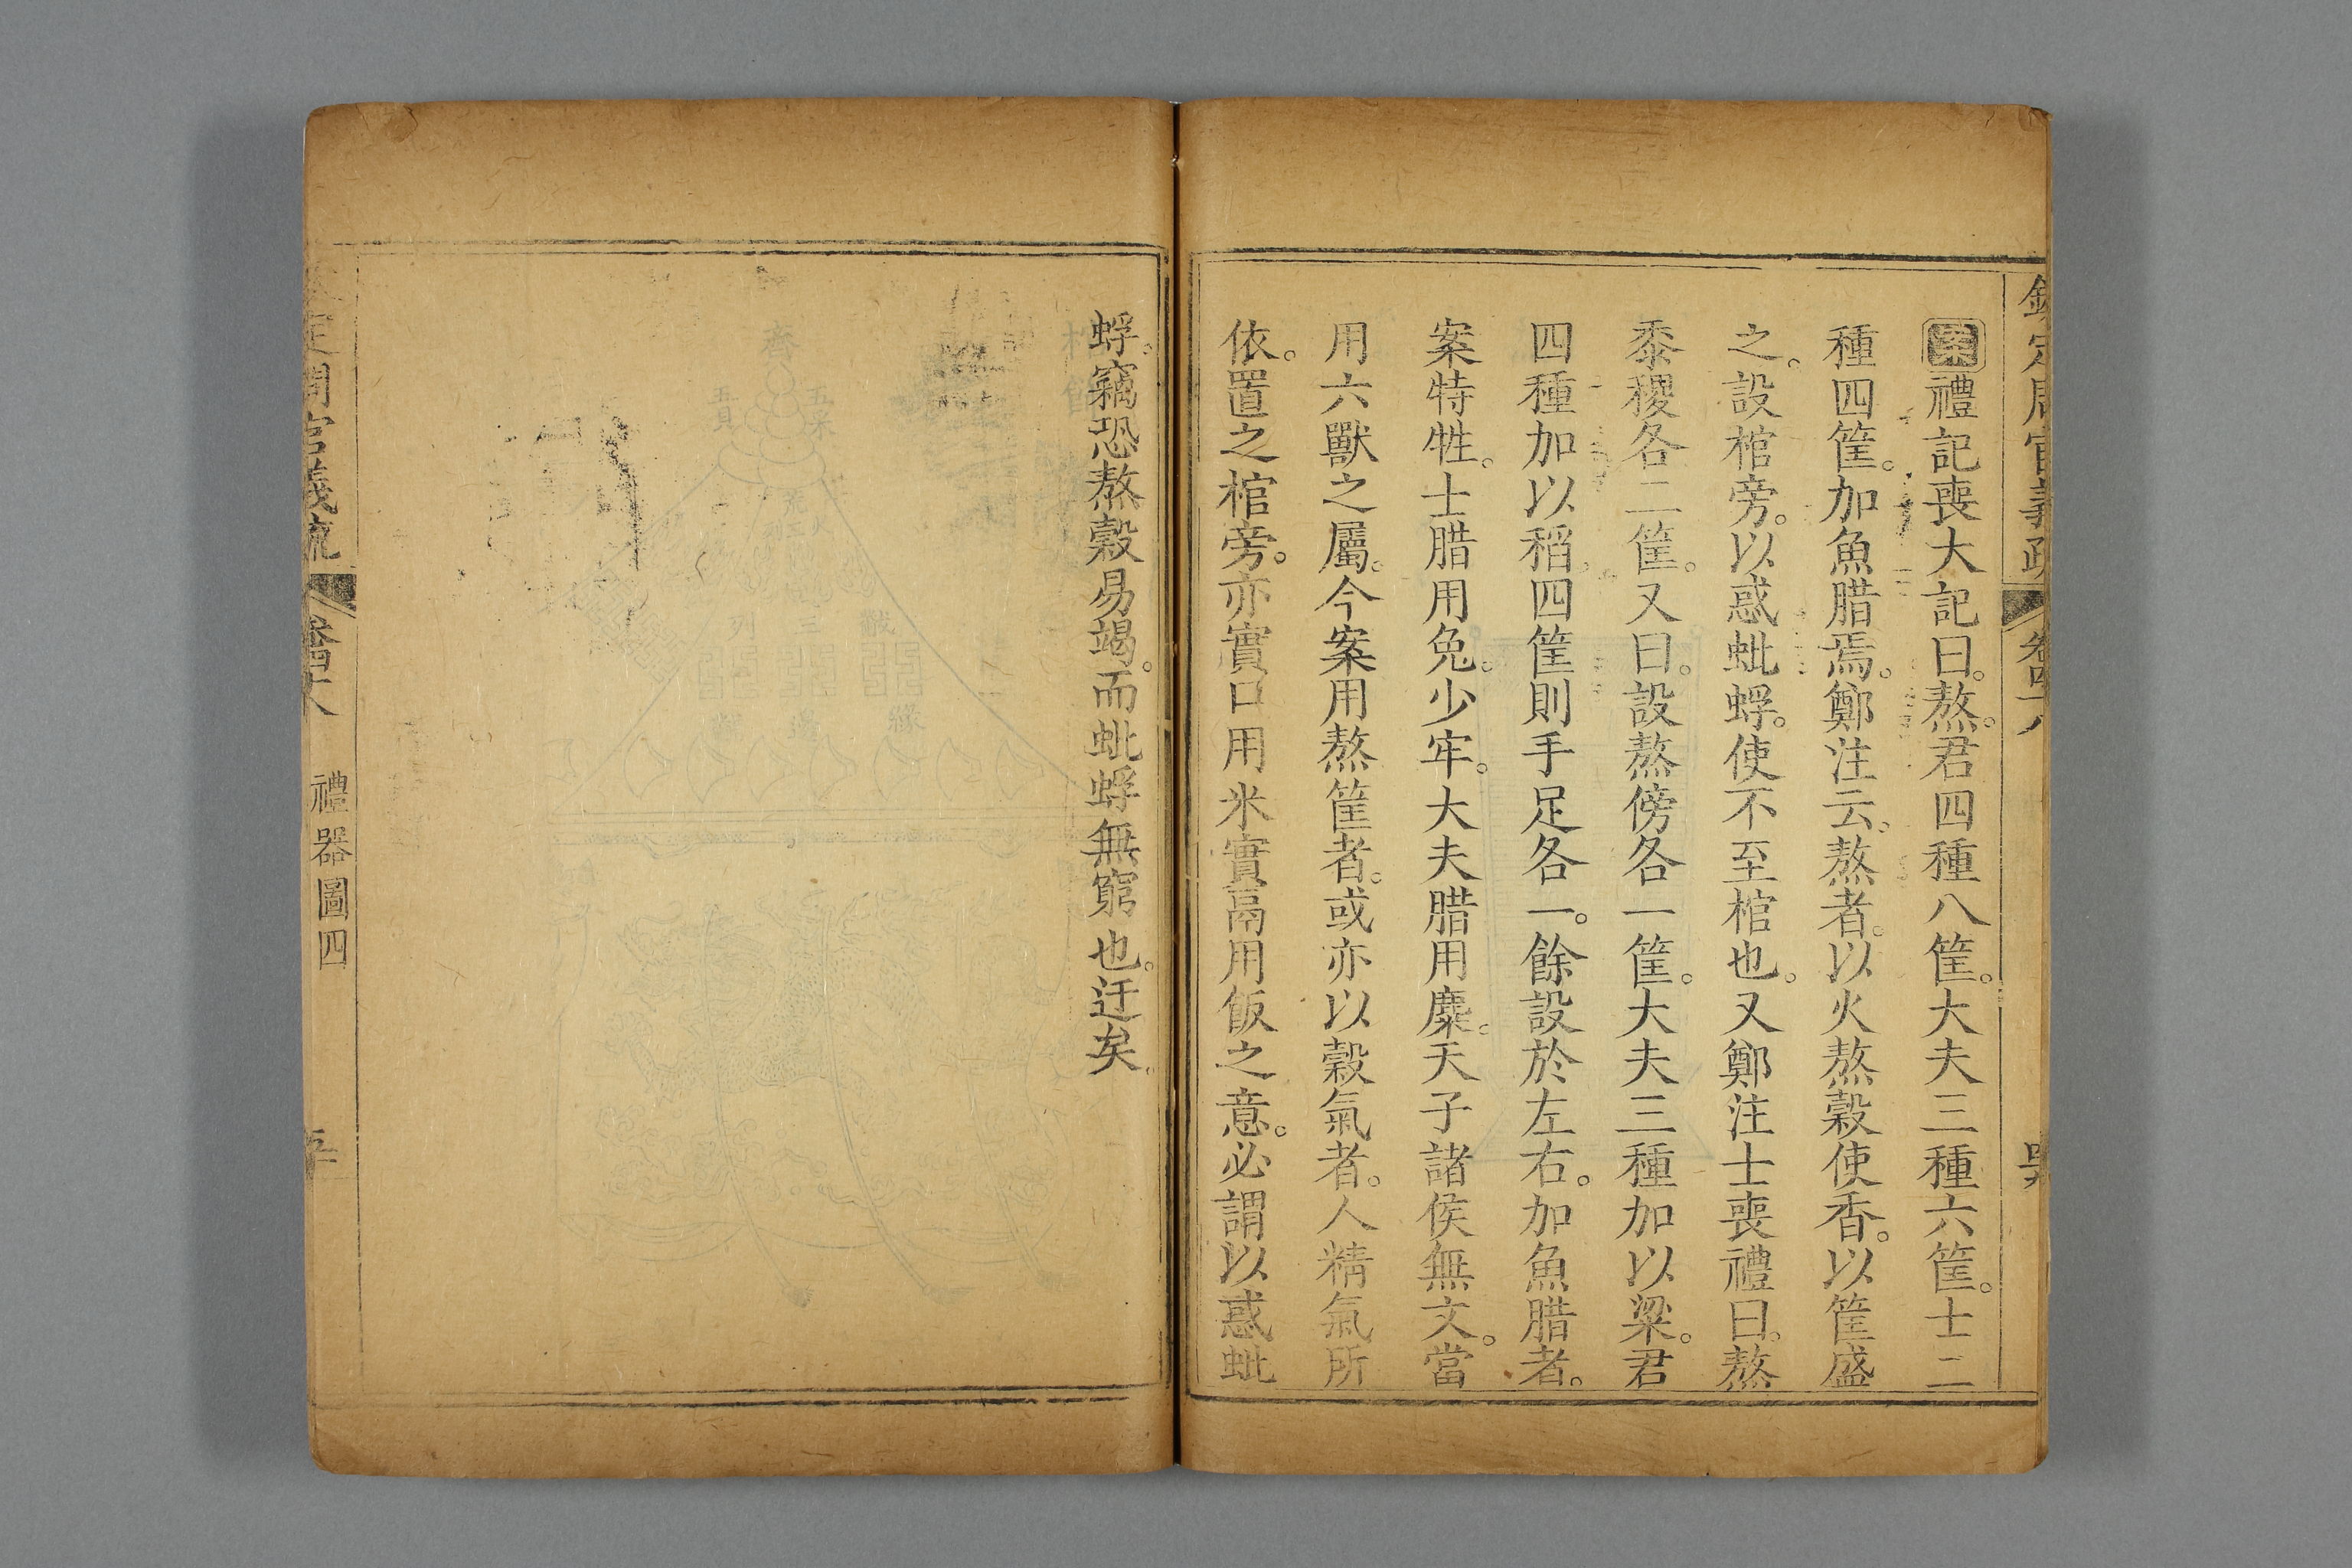 欽定周官義疏 卷四十八
案禮記喪大記曰。熬。君四種八筐。大夫三種六筐。士二
種四筐。加魚腊焉。鄭注云。熬者。以火熬穀使香。以筐盛
之。設棺旁。以惑蚍蜉。使不至棺也。又鄭注士喪禮曰。熬
黍稷各二筐。又曰。設熬傍各一筐。大夫三種加以梁。君
四種加以稻。四筐則手足各一。餘設於左右。加魚腊者。
案特牲。士腊用兔。少牢。大夫腊用麋。天子諸侯無文。當
用六獸之屬。今案用熬筐者。或亦以穀氣者。人精氣所
依。置之棺旁。亦實口用米實鬲用飯之意。必謂以惑蚍
蜉。竊恐熬穀易竭。而蚍蜉無窮也。迂矣
欽定周官義疏 卷四十八 禮器圖四